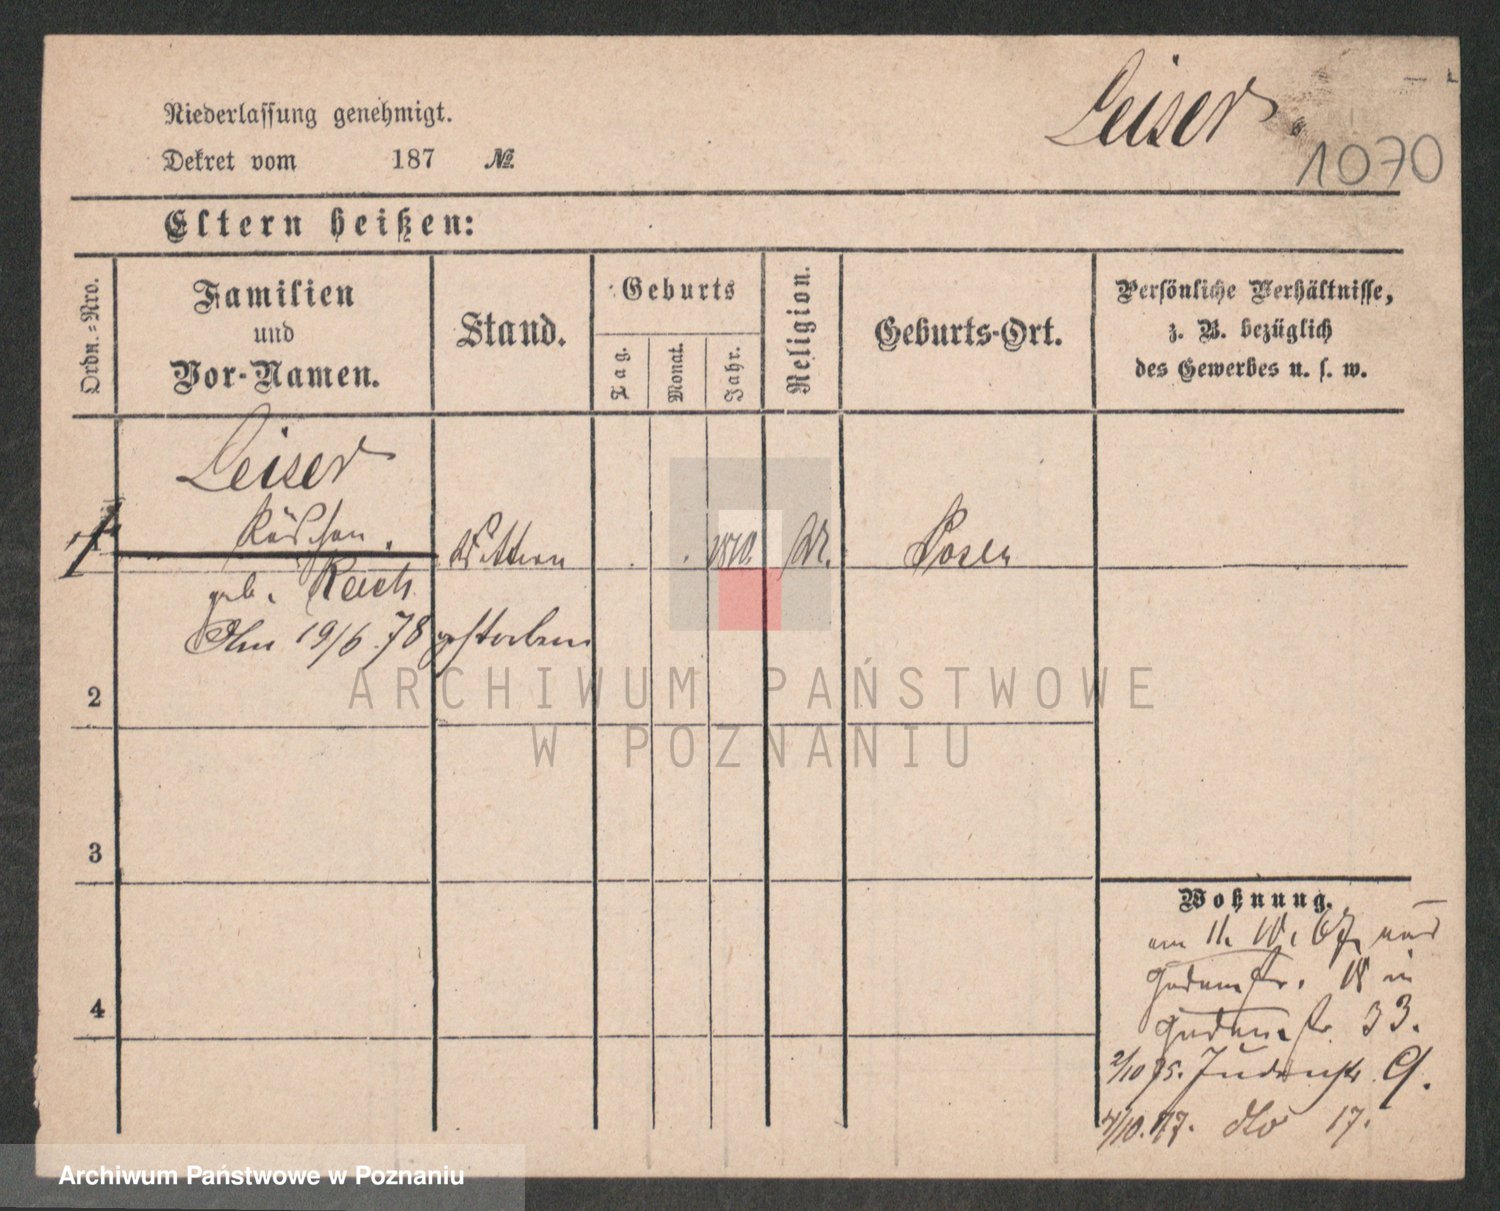 Leiser.
1070
Niederlassung genehmigt.
Dekret vom 187 №
Eltern heißen:
Ordn.-Nro.
Familien
und
Vor-Namen.
Stand.
Geburts
Tag.
Monat.
Jahr.
Religion.
Geburts-Ort.
Persönliche Verhältnisse,
z. B. bezüglich
des Gewerbes u. s. w.
Leiser
Röschen. Wittwe 1810. Posen
geb. Reich
Am 19/6.78 gestorben
2
3
4
Wohnung.
am 11. 10. 67 aus
Judenstr. 18 in
Judenstr. 33.
2/10 75. Judenstr. 9.
4/10.77. dto 17.
ARCHIWUM PAŃSTWOWE
W POZNANIU
Archiwum Państwowe w Poznaniu